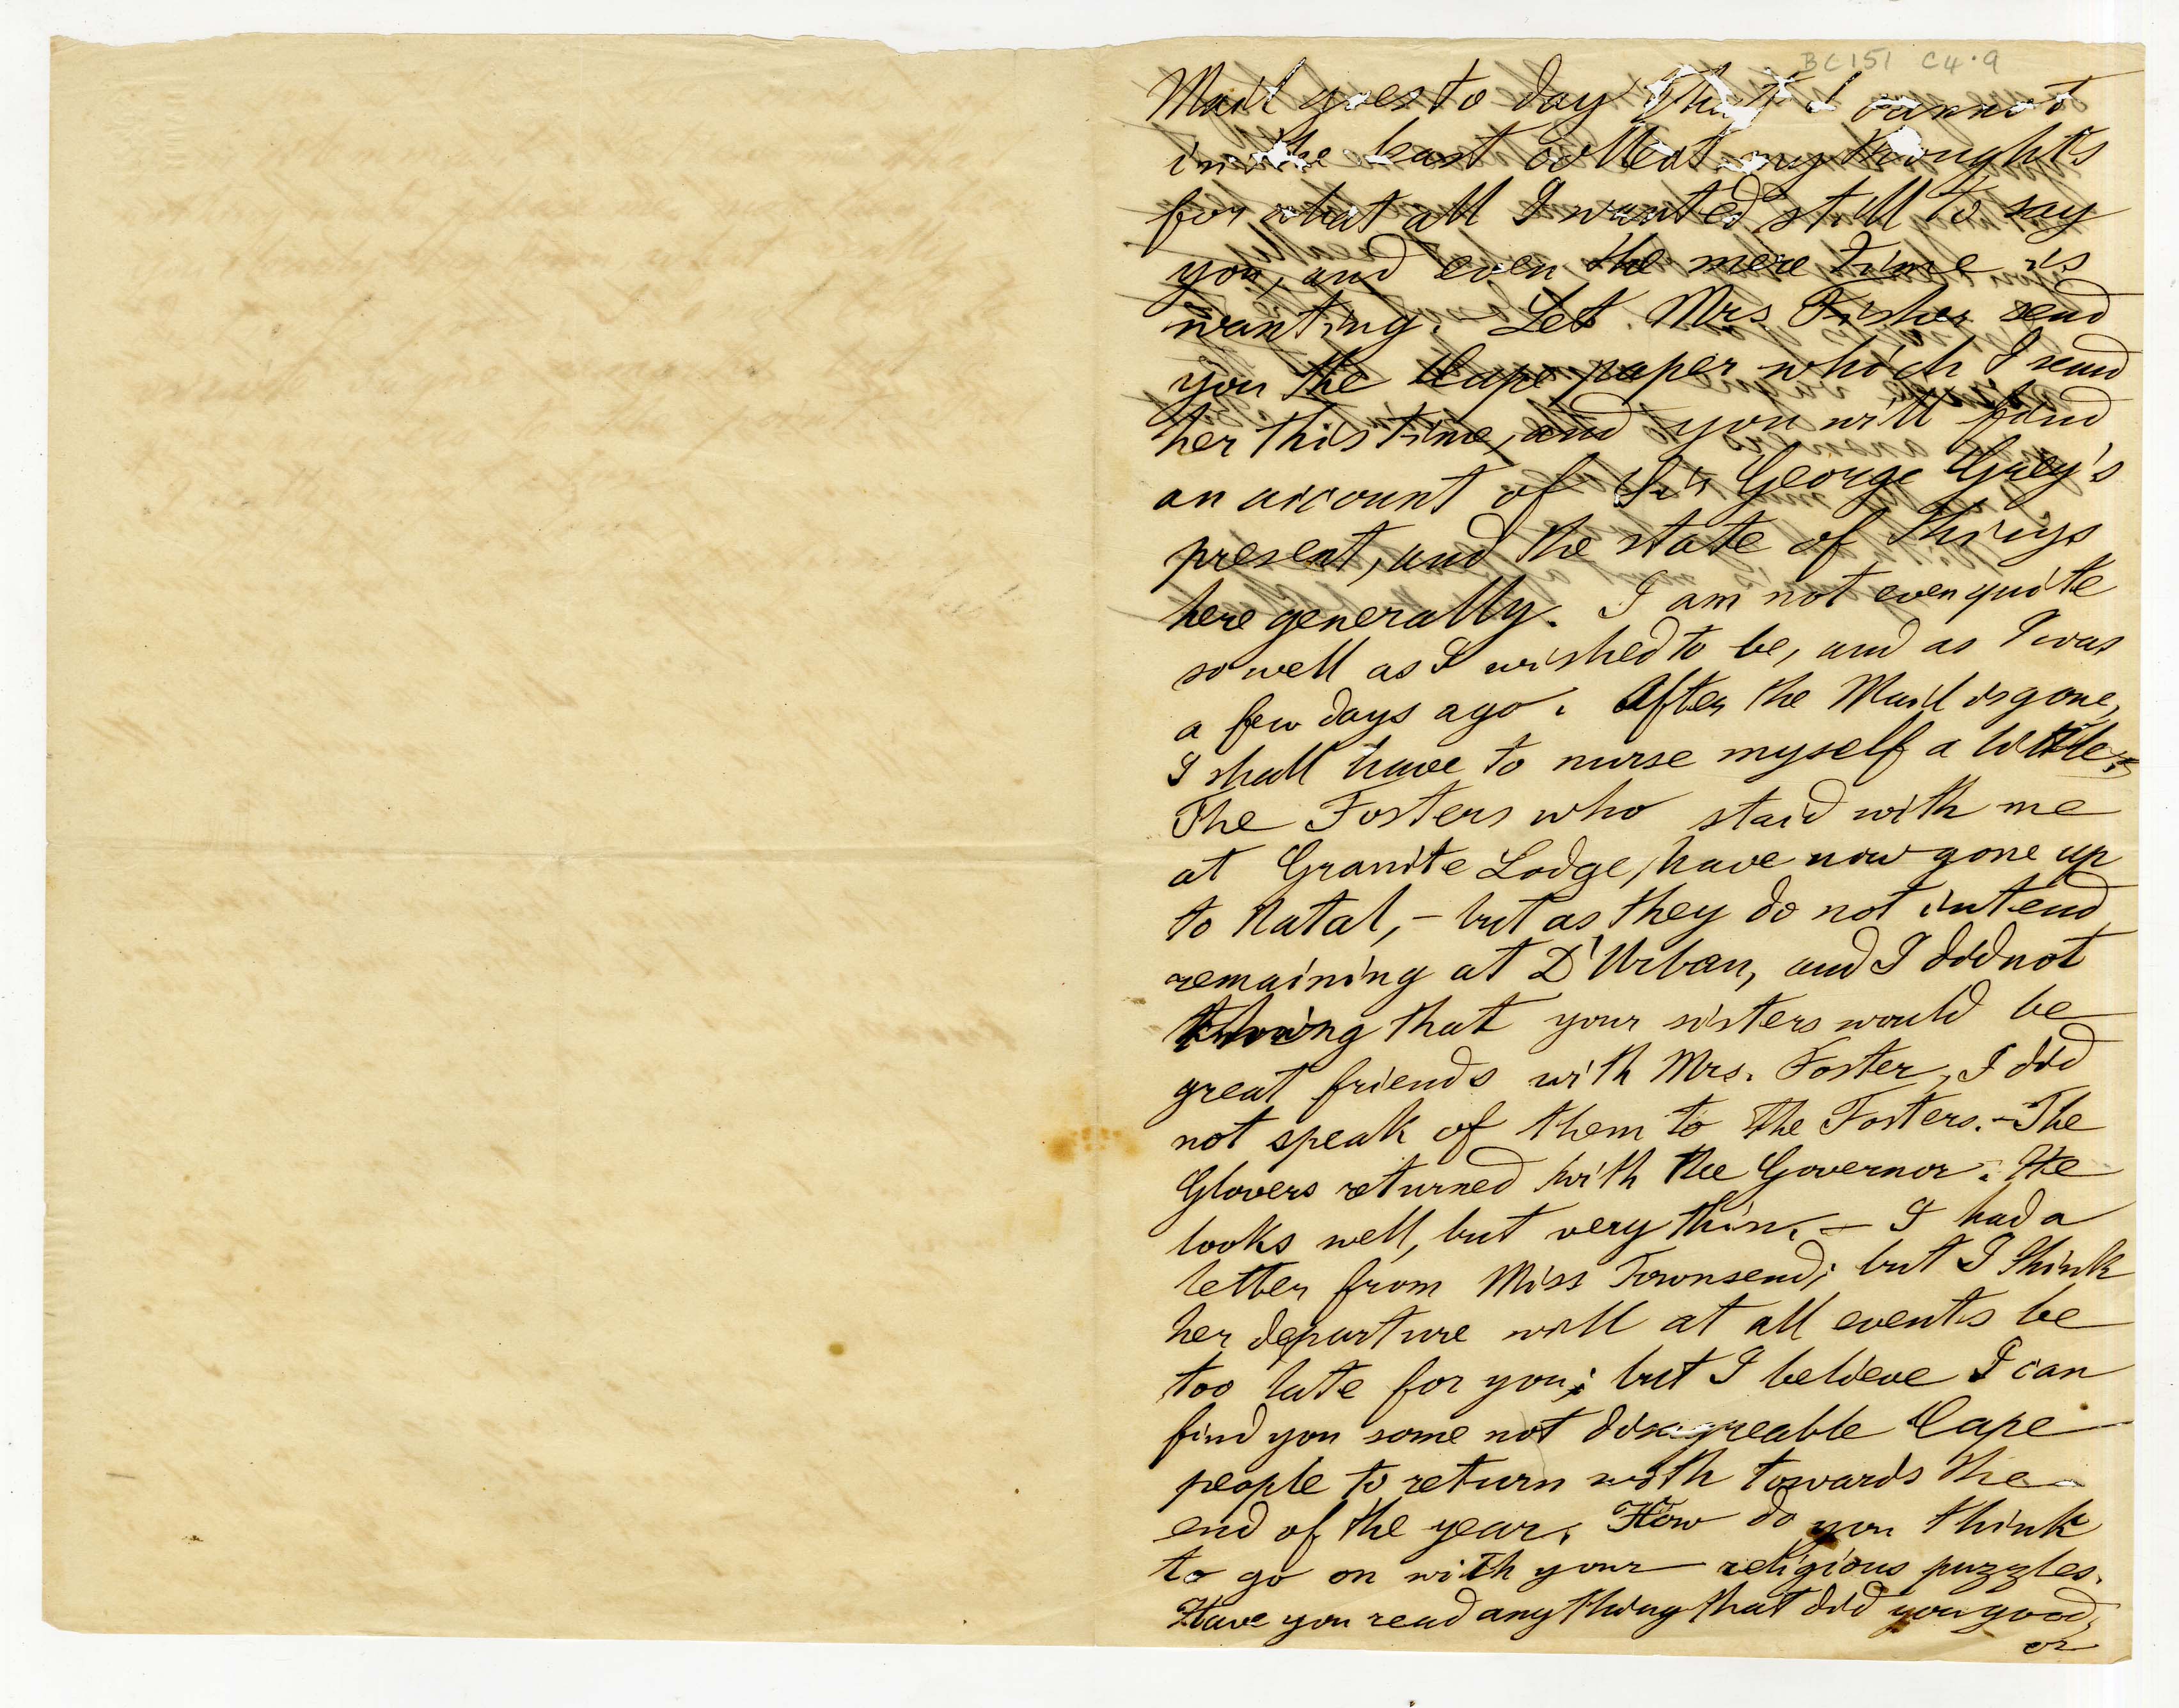 BC151 C4.9
Mail goes to day that I cannot
in the least collect my thoughts
for what all I wanted still to say
you, and even the mere time is
wanting. Let Mrs Fisher send
you the Cape paper which I send
her this time, and you will find
an account of Sir George Grey's
present, and the state of things
here generally. I am not even quite
so well as I wished to be, and as I was
a few days ago. After the Mail is gone,
I shall have to nurse myself a little.
The Fosters who staid with me
at Granite Lodge, have now gone up
to Natal, – but as they do not intend
remaining at D'Urban, and I did not
that your sisters would be
great friends with Mrs. Foster, I did
not speak of them to the Fosters. – The
Glovers returned with the Governor. He
looks well, but very thin. – I had a
letter from Miss Townsend; but I think
her departure will at all events be
too late for you; but I believe I can
find you some not disagreable Cape
people to return with towards the
end of the year. How do you think
to go on with your religious puzzles.
Have you read any thing that did you good,
or